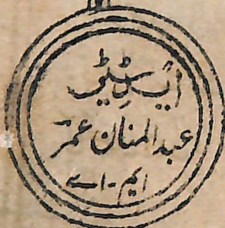 ایڈیٹر
عبدالمنان عمر
ایم-اے